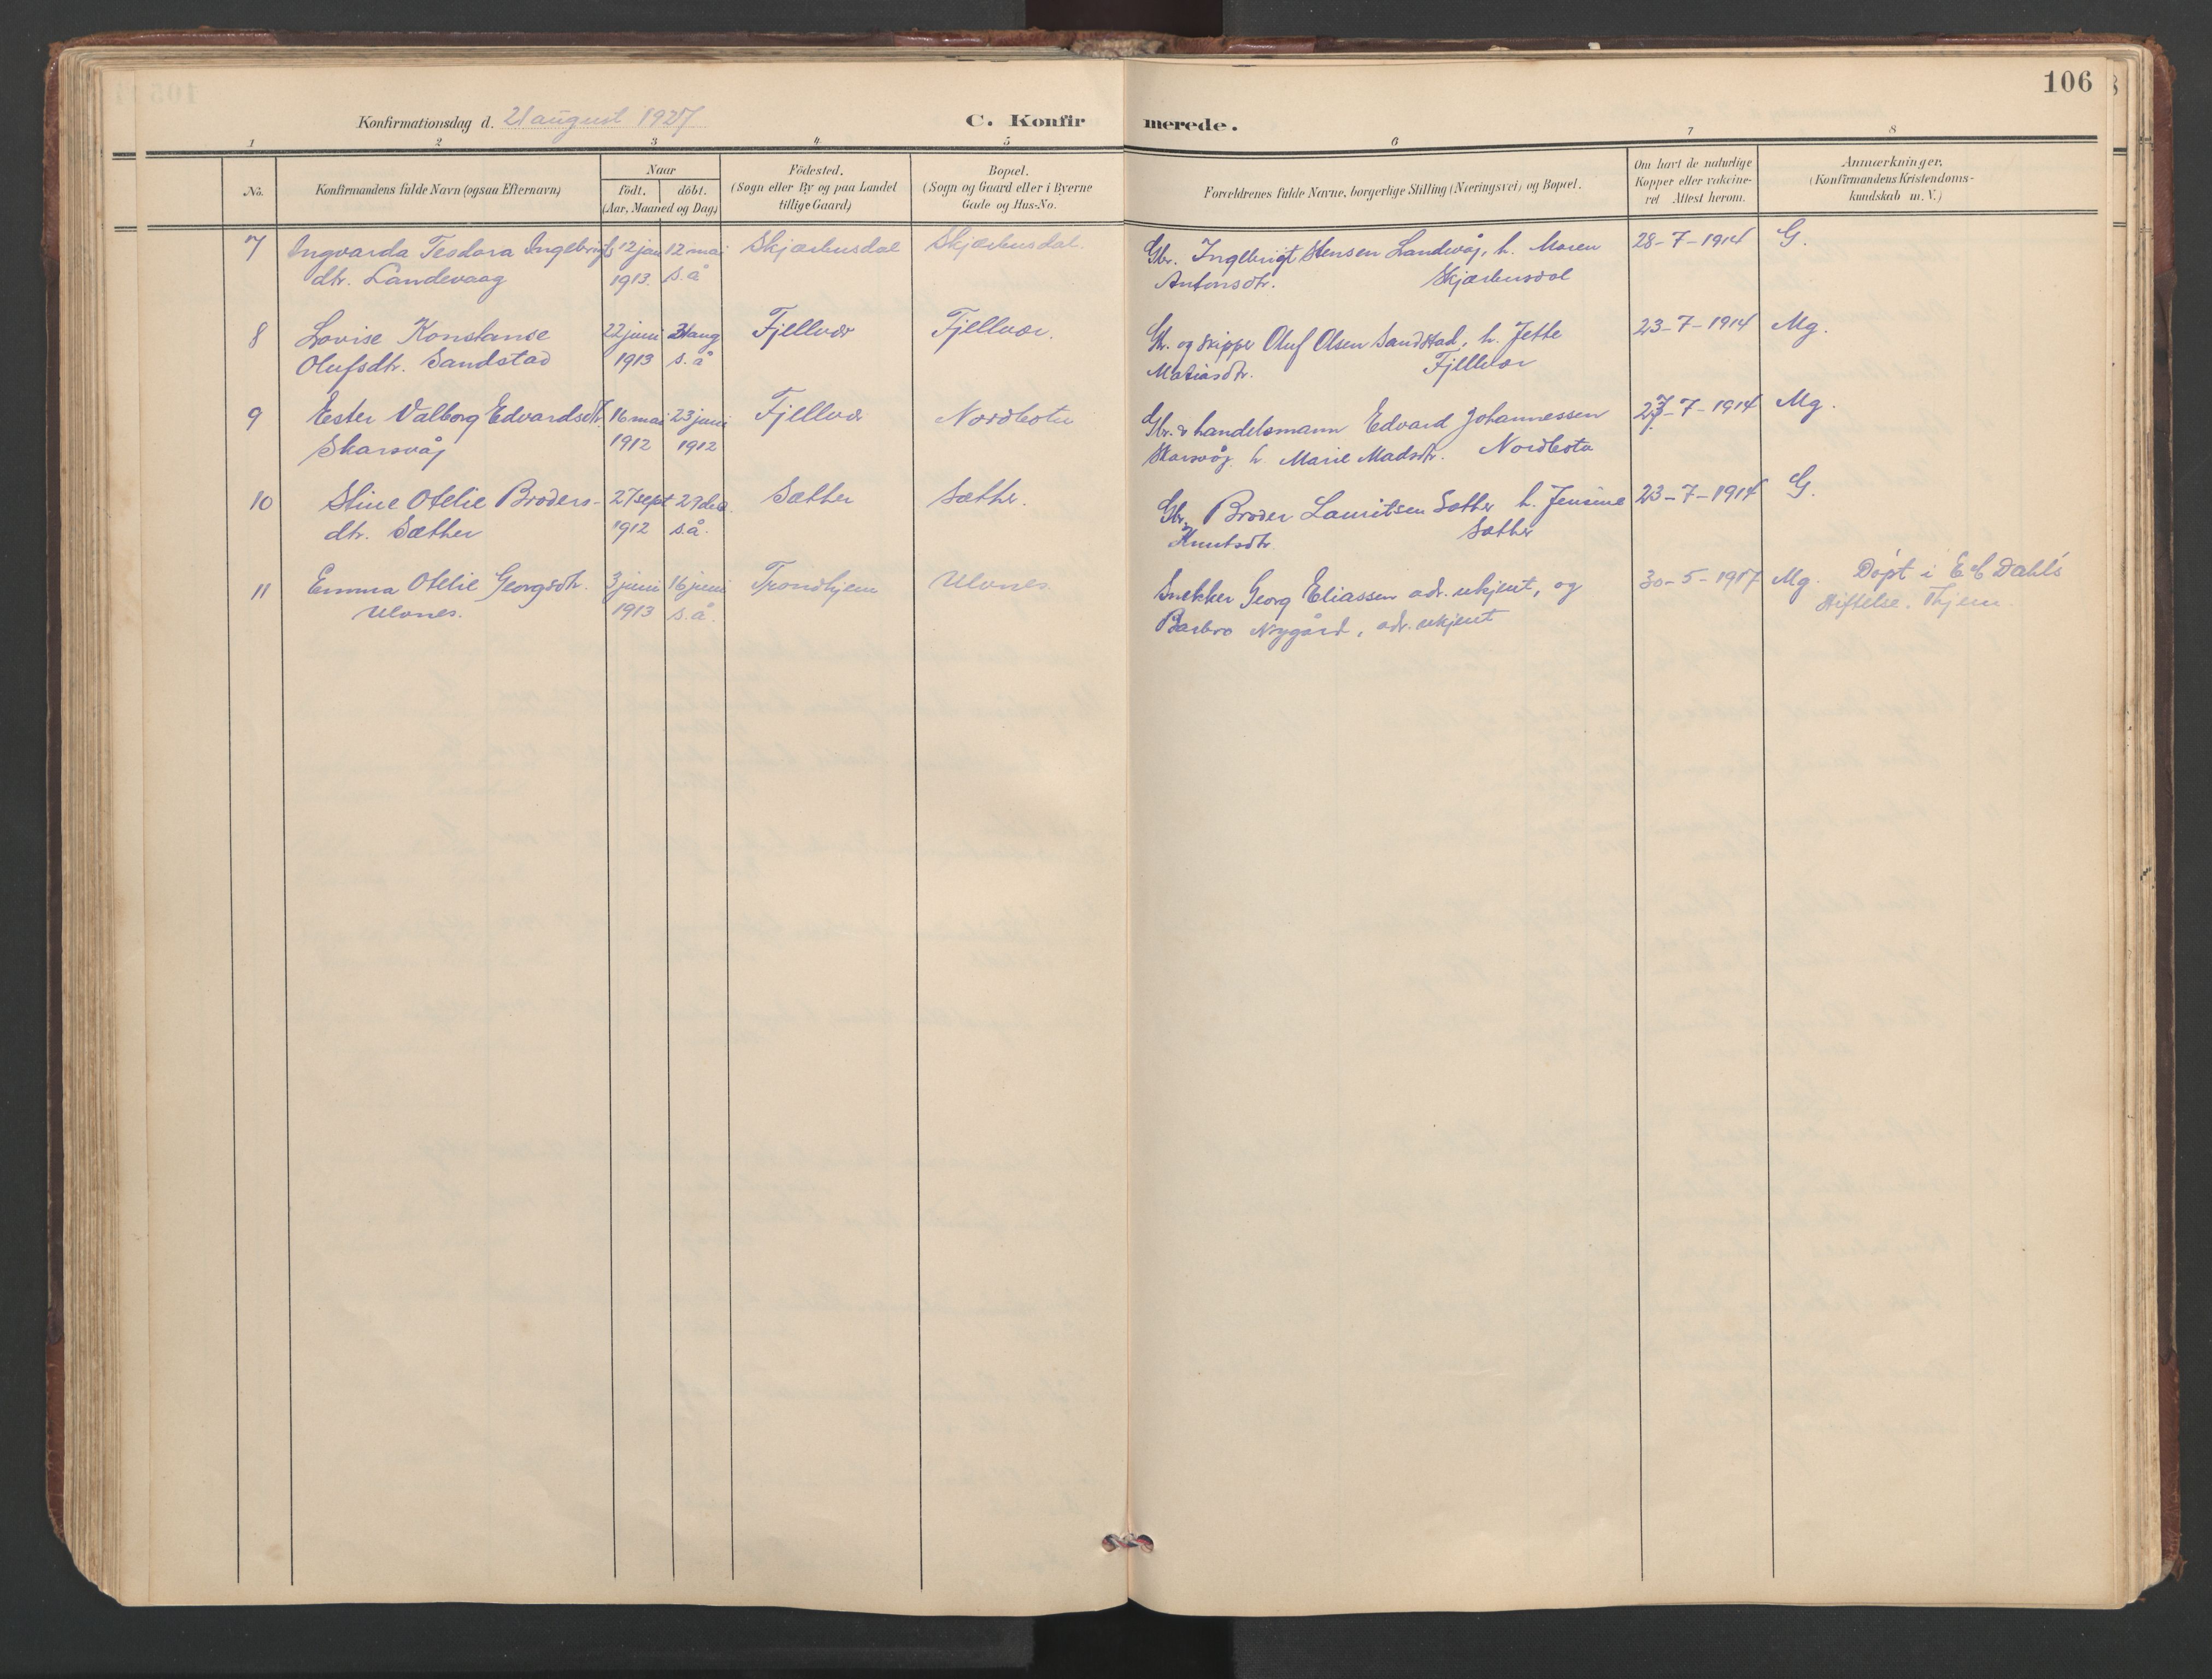 106
Konfirmationsdag d. 21 august 1927
C. Konfirmerede.
1 2 3 4 5 6 7 8
No.
Konfirmandens fulde Navn (ogsaa Efternavn)
Naar
födt. döbt.
(Aar, Maaned og Dag)
Födested.
(Sogn eller By og paa Landet
tillige Gaard)
Bopæl.
(Sogn og Gaard eller i Byerne
Gade og Hus-No.
Forældrenes fulde Navne, borgerlige Stilling (Næringsvei) og Bopæl.
Om havt de naturlige
Kopper eller vakcine-
ret. Attest herom.
Anmærkninger.
(Konfirmandens Kristendoms-
kundskab m. V.)
7 Ingvarda Teodora Ingebrigts 12 jan 12 mai Skjærbusdal Skjærbusdal. Gbr. Ingebrigt Stensen Landevåg, h. Maren 28-7-1914 G.
dtr. Landevaag 1913. s.å Antonsdtr. Skjærbusdal
8 Lovise Konstanse 22 juni 31 aug Fjellvær Fjellvær. Gbr. og skipper Oluf Olsen Sandstad, h. Jette 23-7-1914 Mg.
Olufsdtr. Sandstad 1913 s.å Matiasdtr. Fjellvær
9 Ester Valborg Edvardsdtr. 16 mai 23 juni Fjellvær Nordbotn Gbr. & handelsmann Edvard Johannessen 23-7-1914 Mg.
Skarsvåg 1912 1912 Skarsvåg h. Marie Madsdtr. Nordbotn
10 Stine Otelie Broders- 27 sept 29 des. Sæther Sæther. Gbr. Broder Lauritsen Sæther h. Jensine 23-7-1914 G.
dtr. Sæther 1912 s.å. Knutsdtr. Sæther
11 Emma Otelie Georgsdtr. 3 juni 16 juni Trondhjem Ulvnes. Snekker Georg Eliassen adr. ukjent, og 30-5-1917 Mg. Döpt i E C Dahls
Ulvnes. 1913 s.å. Barbro Nygård, adr. ukjent Stiftelse. Thjem.